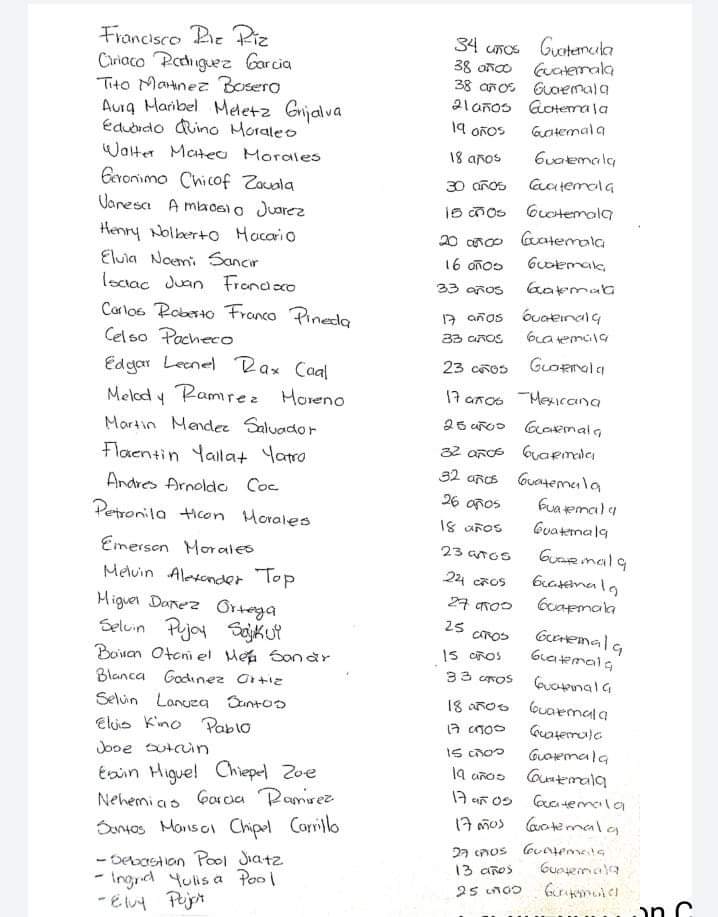 Francisco Riz Riz 34 años Guatemala
Ciriaco Rodriguez Garcia 38 años Guatemala
Tito Martinez Bosero 38 años Guatemala
Aura Maribel Meletz Grijalva 21 años Guatemala
Eduardo Quino Morales 19 años Guatemala
Walter Mateo Morales 18 años Guatemala
Geronimo Chicof Zavala 30 años Guatemala
Vanesa Ambrosio Juarez 15 años Guatemala
Henry Nolberto Macario 20 años Guatemala
Elvia Noemi Sancir 16 años Guatemala
Isaac Juan Francisco 33 años Guatemala
Carlos Roberto Franco Pineda 17 años Guatemala
Celso Pacheco 33 años Guatemala
Edgar Leonel Rax Caal 23 años Guatemala
Melody Ramirez Moreno 17 años Mexicana
Martin Mendez Salvador 25 años Guatemala
Florentin Yallat Yatro 32 años Guatemala
Andres Arnoldo Coc 32 años Guatemala
Petronila Hicon Morales 26 años Guatemala
18 años Guatemala
Emerson Morales 23 años Guatemala
Melvin Alexander Top 24 años Guatemala
Miguel Ortega 27 años Guatemala
Selvin Pujoy Sajkuy 25 años Guatemala
Otoniel Sandir 15 años Guatemala
Blanca Godinez Ortiz 33 años Guatemala
Selvin Lanuza Santos 18 años Guatemala
Elvis Kino Pablo 17 años Guatemala
Jose 15 años Guatemala
Miguel Chiepel 19 años Guatemala
Nehemias Garcia Ramirez 17 años Guatemala
Santos Marisol Chipel Carrillo 17 años Guatemala
- Sebastian Pool Jiatz 27 años Guatemala
- Ingrid Yulisa Pool 13 años Guatemala
- Elvy Pujoy 25 años Guatemala
on C